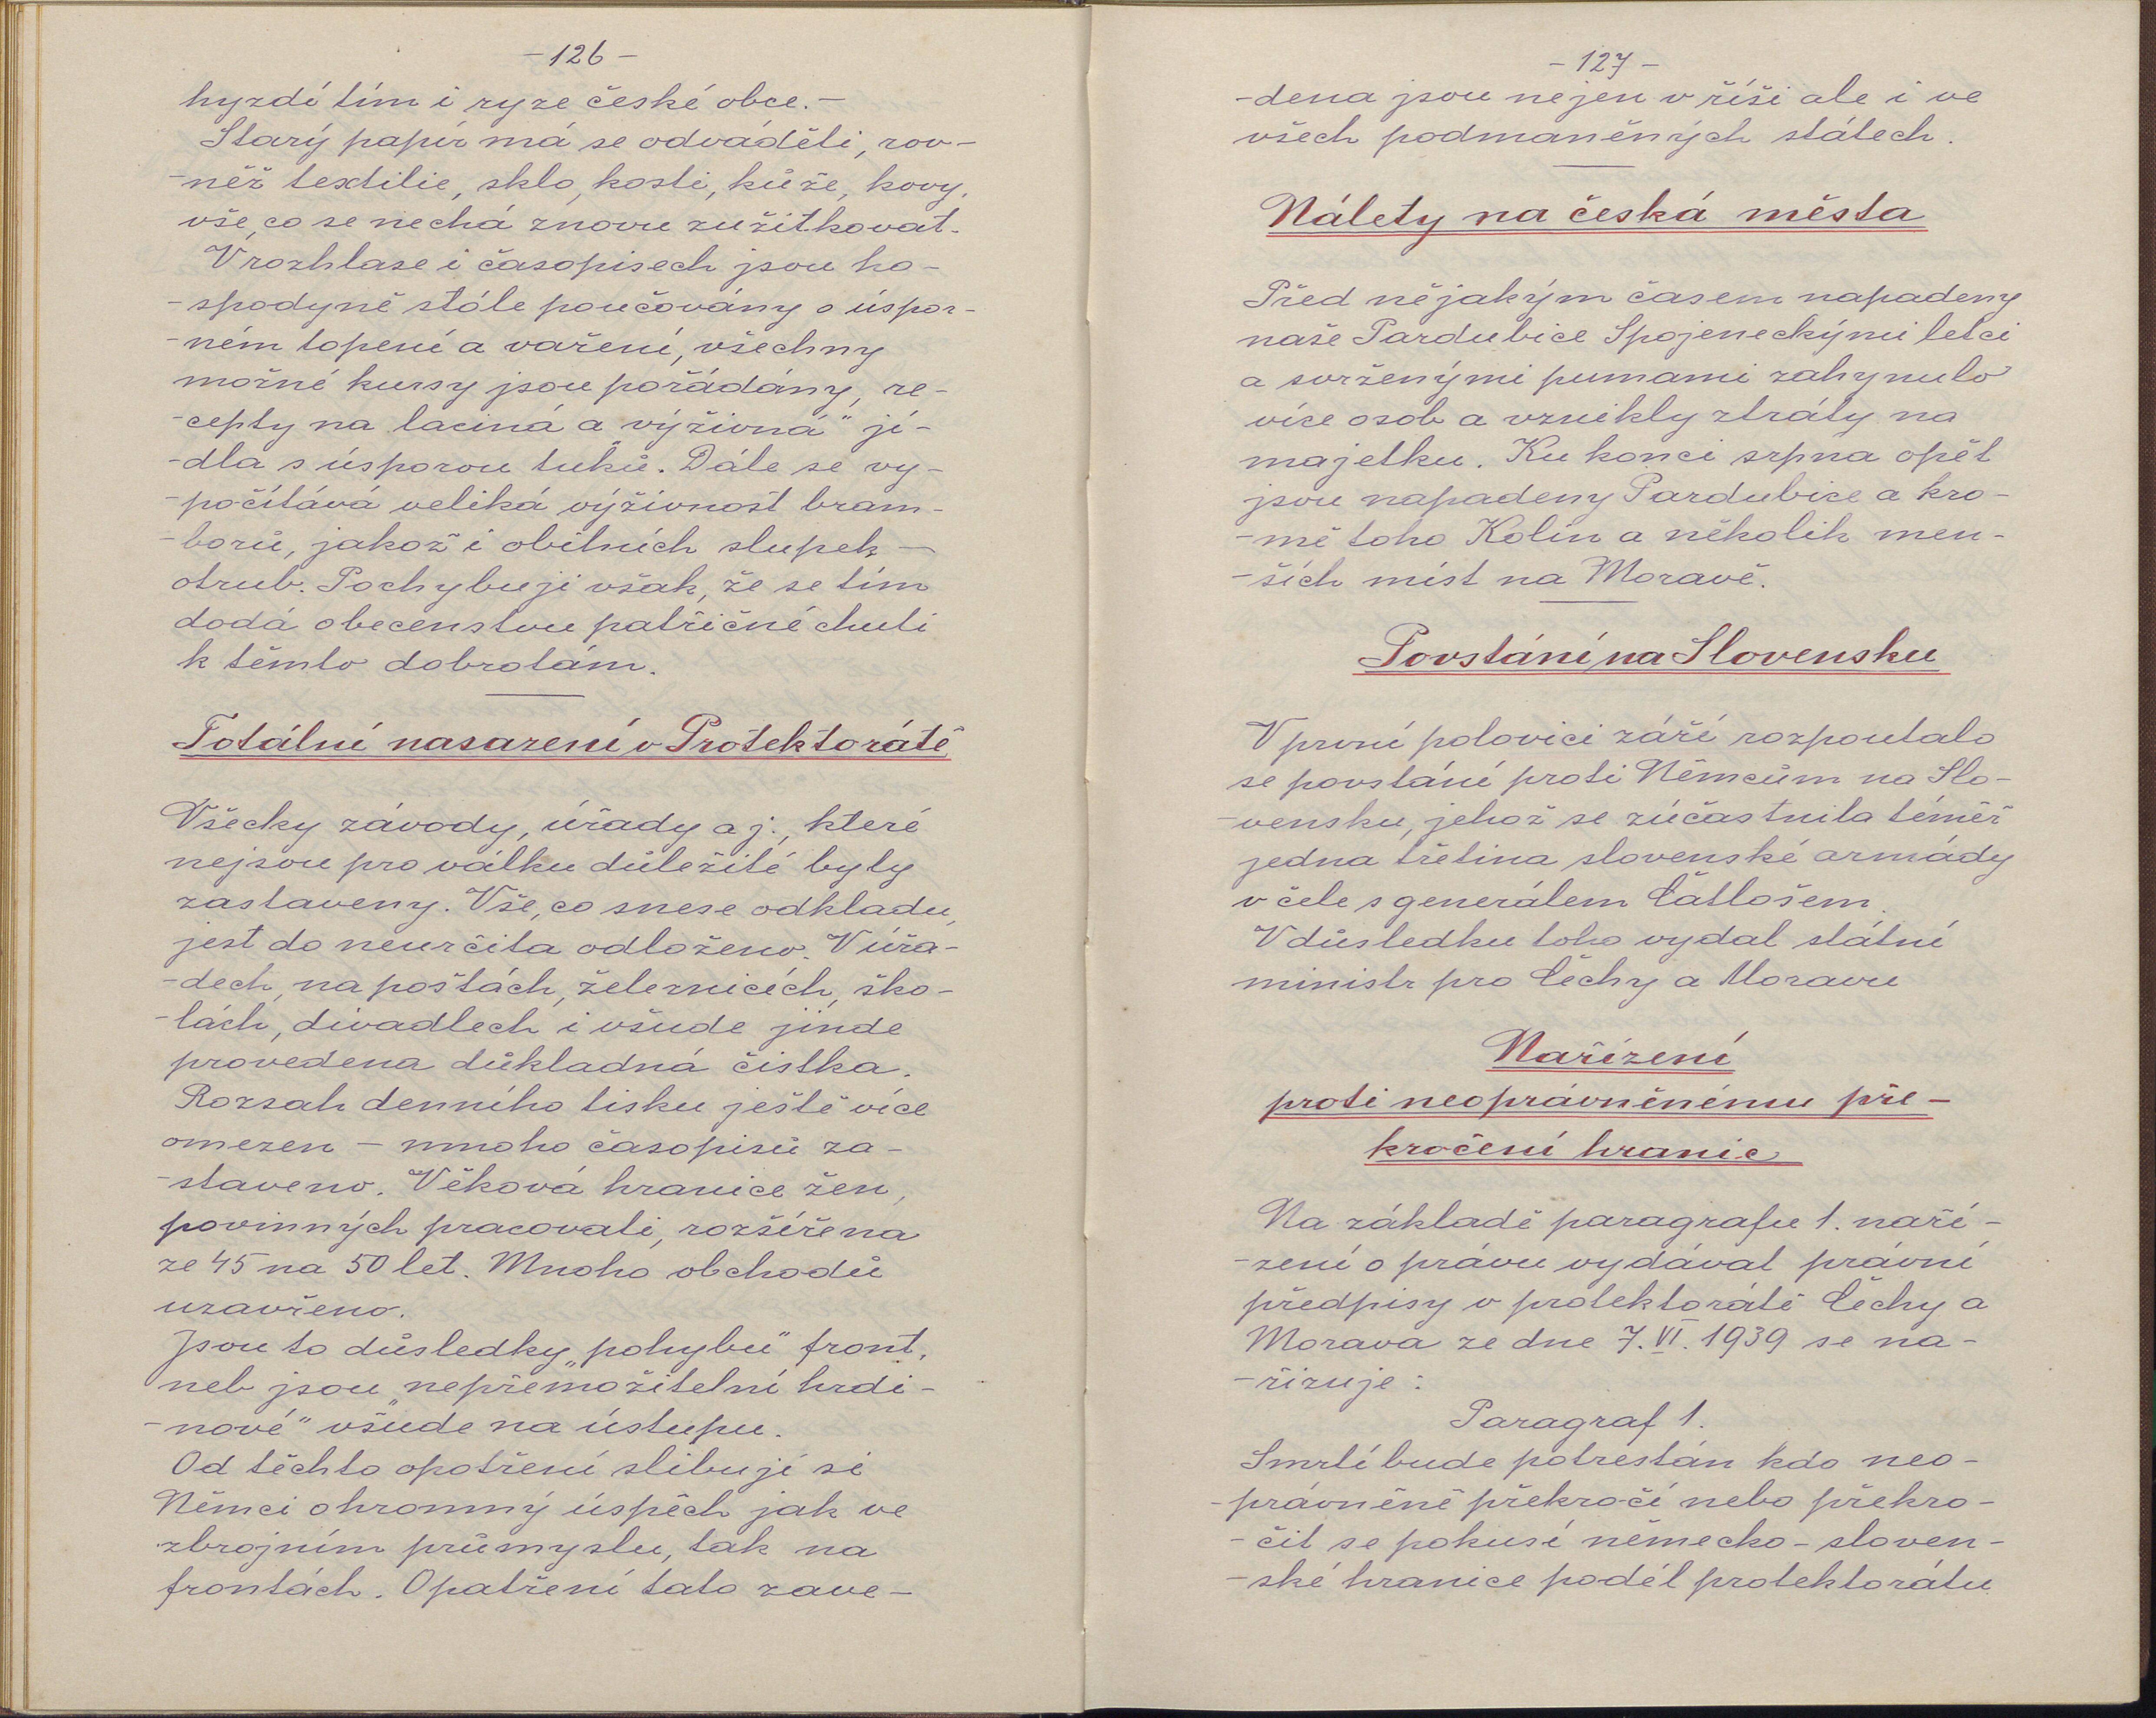 -126-
hyzdí tím i ryze české obce.-
Starý papír má se odváděti, rov-
-něž textilie, sklo, kosti, kůže, kovy,
vše, co se nechá znovu zužitkovat.
V rozhlase i časopisech jsou ho-
-spodyně stále poučovány o úspor-
-ném topení a vaření, všechny
možné kursy jsou pořádány, re-
-cepty na laciná a výživná" jí-
-dla s úsporou tuků. Dále se vy-
-počítává veliká výživnost bram-
-borů, jakož i obilních slupek -
otrub. Pochybuji však, že se tím
dodá obecenstvu patřičné chuti
k těmto dobrotám.
Totální nasazení v Protektorátě
Všecky závody, úřady a j., které
nejsou pro válku důležité byly
zastaveny. Vše, co snese odkladu,
jest do neurčita odloženo. V úřa-
-dech, na poštách, železnicích, ško-
-lách, divadlech i všude jinde
provedena důkladná čistka.
Rozsah denního tisku ještě více
omezen - mnoho časopisů za-
-staveno. Věková hranice žen,
povinných pracovati, rozšířena
ze 45 na 50 let. Mnoho obchodů
uzavřeno.
Jsou to důsledky „pohybů" front,
neb jsou „nepřemožitelní hrdi-
-nové" všude na ústupu.
Od těchto opatření slibují si
Němci ohromný úspěch jak ve
zbrojním průmyslu, tak na
frontách. Opatření tato zave-
-127-
-dena jsou nejen v říši ale i ve
všech podmaněných státech.
Nálety na česká města
Před nějakým časem napadeny
naše Pardubice Spojeneckými letci
a svrženými pumami zahynulo
více osob a vznikly ztráty na
majetku. Ku konci srpna opět
jsou napadeny Pardubice a kro-
-mě toho Kolín a několik men-
-ších míst na Moravě.
Povstání na Slovensku
V první polovici září rozpoutalo
se povstání proti Němcům na Slo-
-vensku, jehož se zúčastnila téměř
jedna třetina slovenské armády
v čele s generálem Čatlošem.
V důsledku toho vydal státní
ministr pro Čechy a Moravu
Nařízení
proti neoprávněnému pře-
kročení hranic
Na základě paragrafu 1. naří-
-zení o právu vydávat právní
předpisy v protektorátě Čechy a
Morava ze dne 7. VI. 1939 se na-
-řizuje:
Paragraf 1.
Smrtí bude potrestán kdo neo-
-právněně překročí nebo překro-
-čit se pokusí německo-sloven-
-ské hranice podél protektorátu